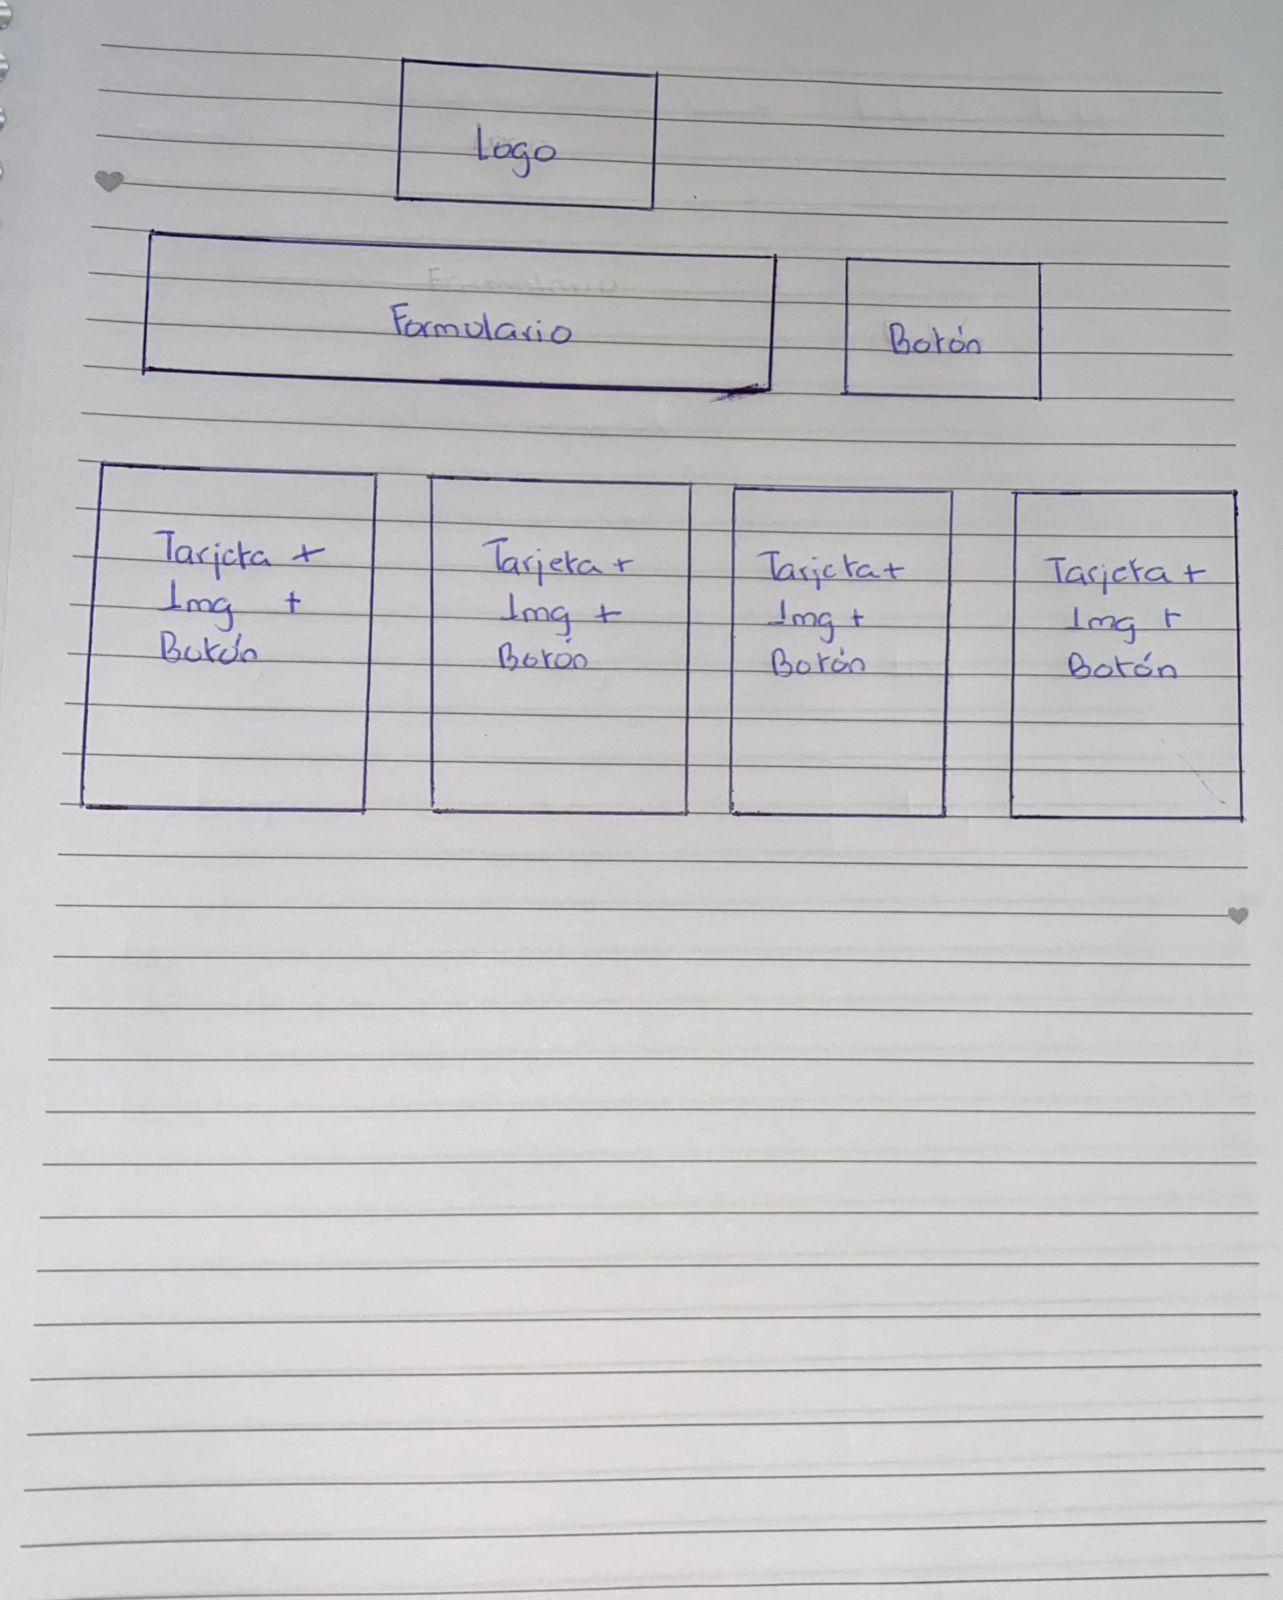 Logo
Formulario
Formulario
Botón
Tarjeta +
Img +
Botón
Tarjeta +
Img +
Botón
Tarjeta +
Img +
Botón
Tarjeta +
Img +
Botón